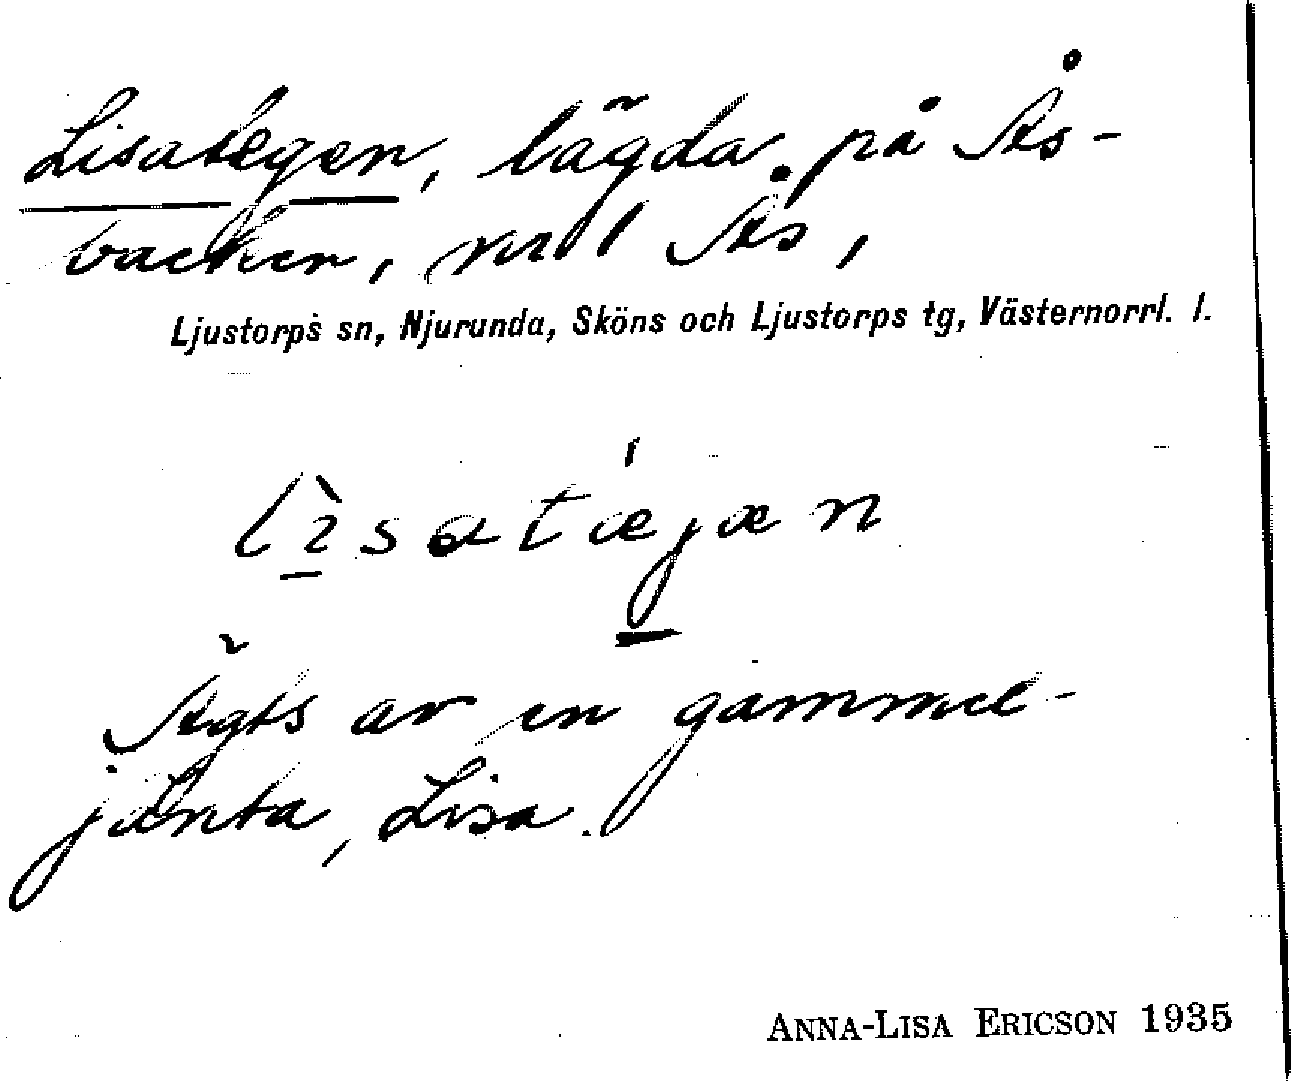 Lisategen, lägda på Ås-
backen, nr 1 Ås,
Ljustorps sn, Njurunda, Sköns och Ljustorps tg, Västernorrl. l.
lìsatǽjæn
Ägts av en gammel-
jänta, Lisa.
ANNA-LISA ERICSON 1935